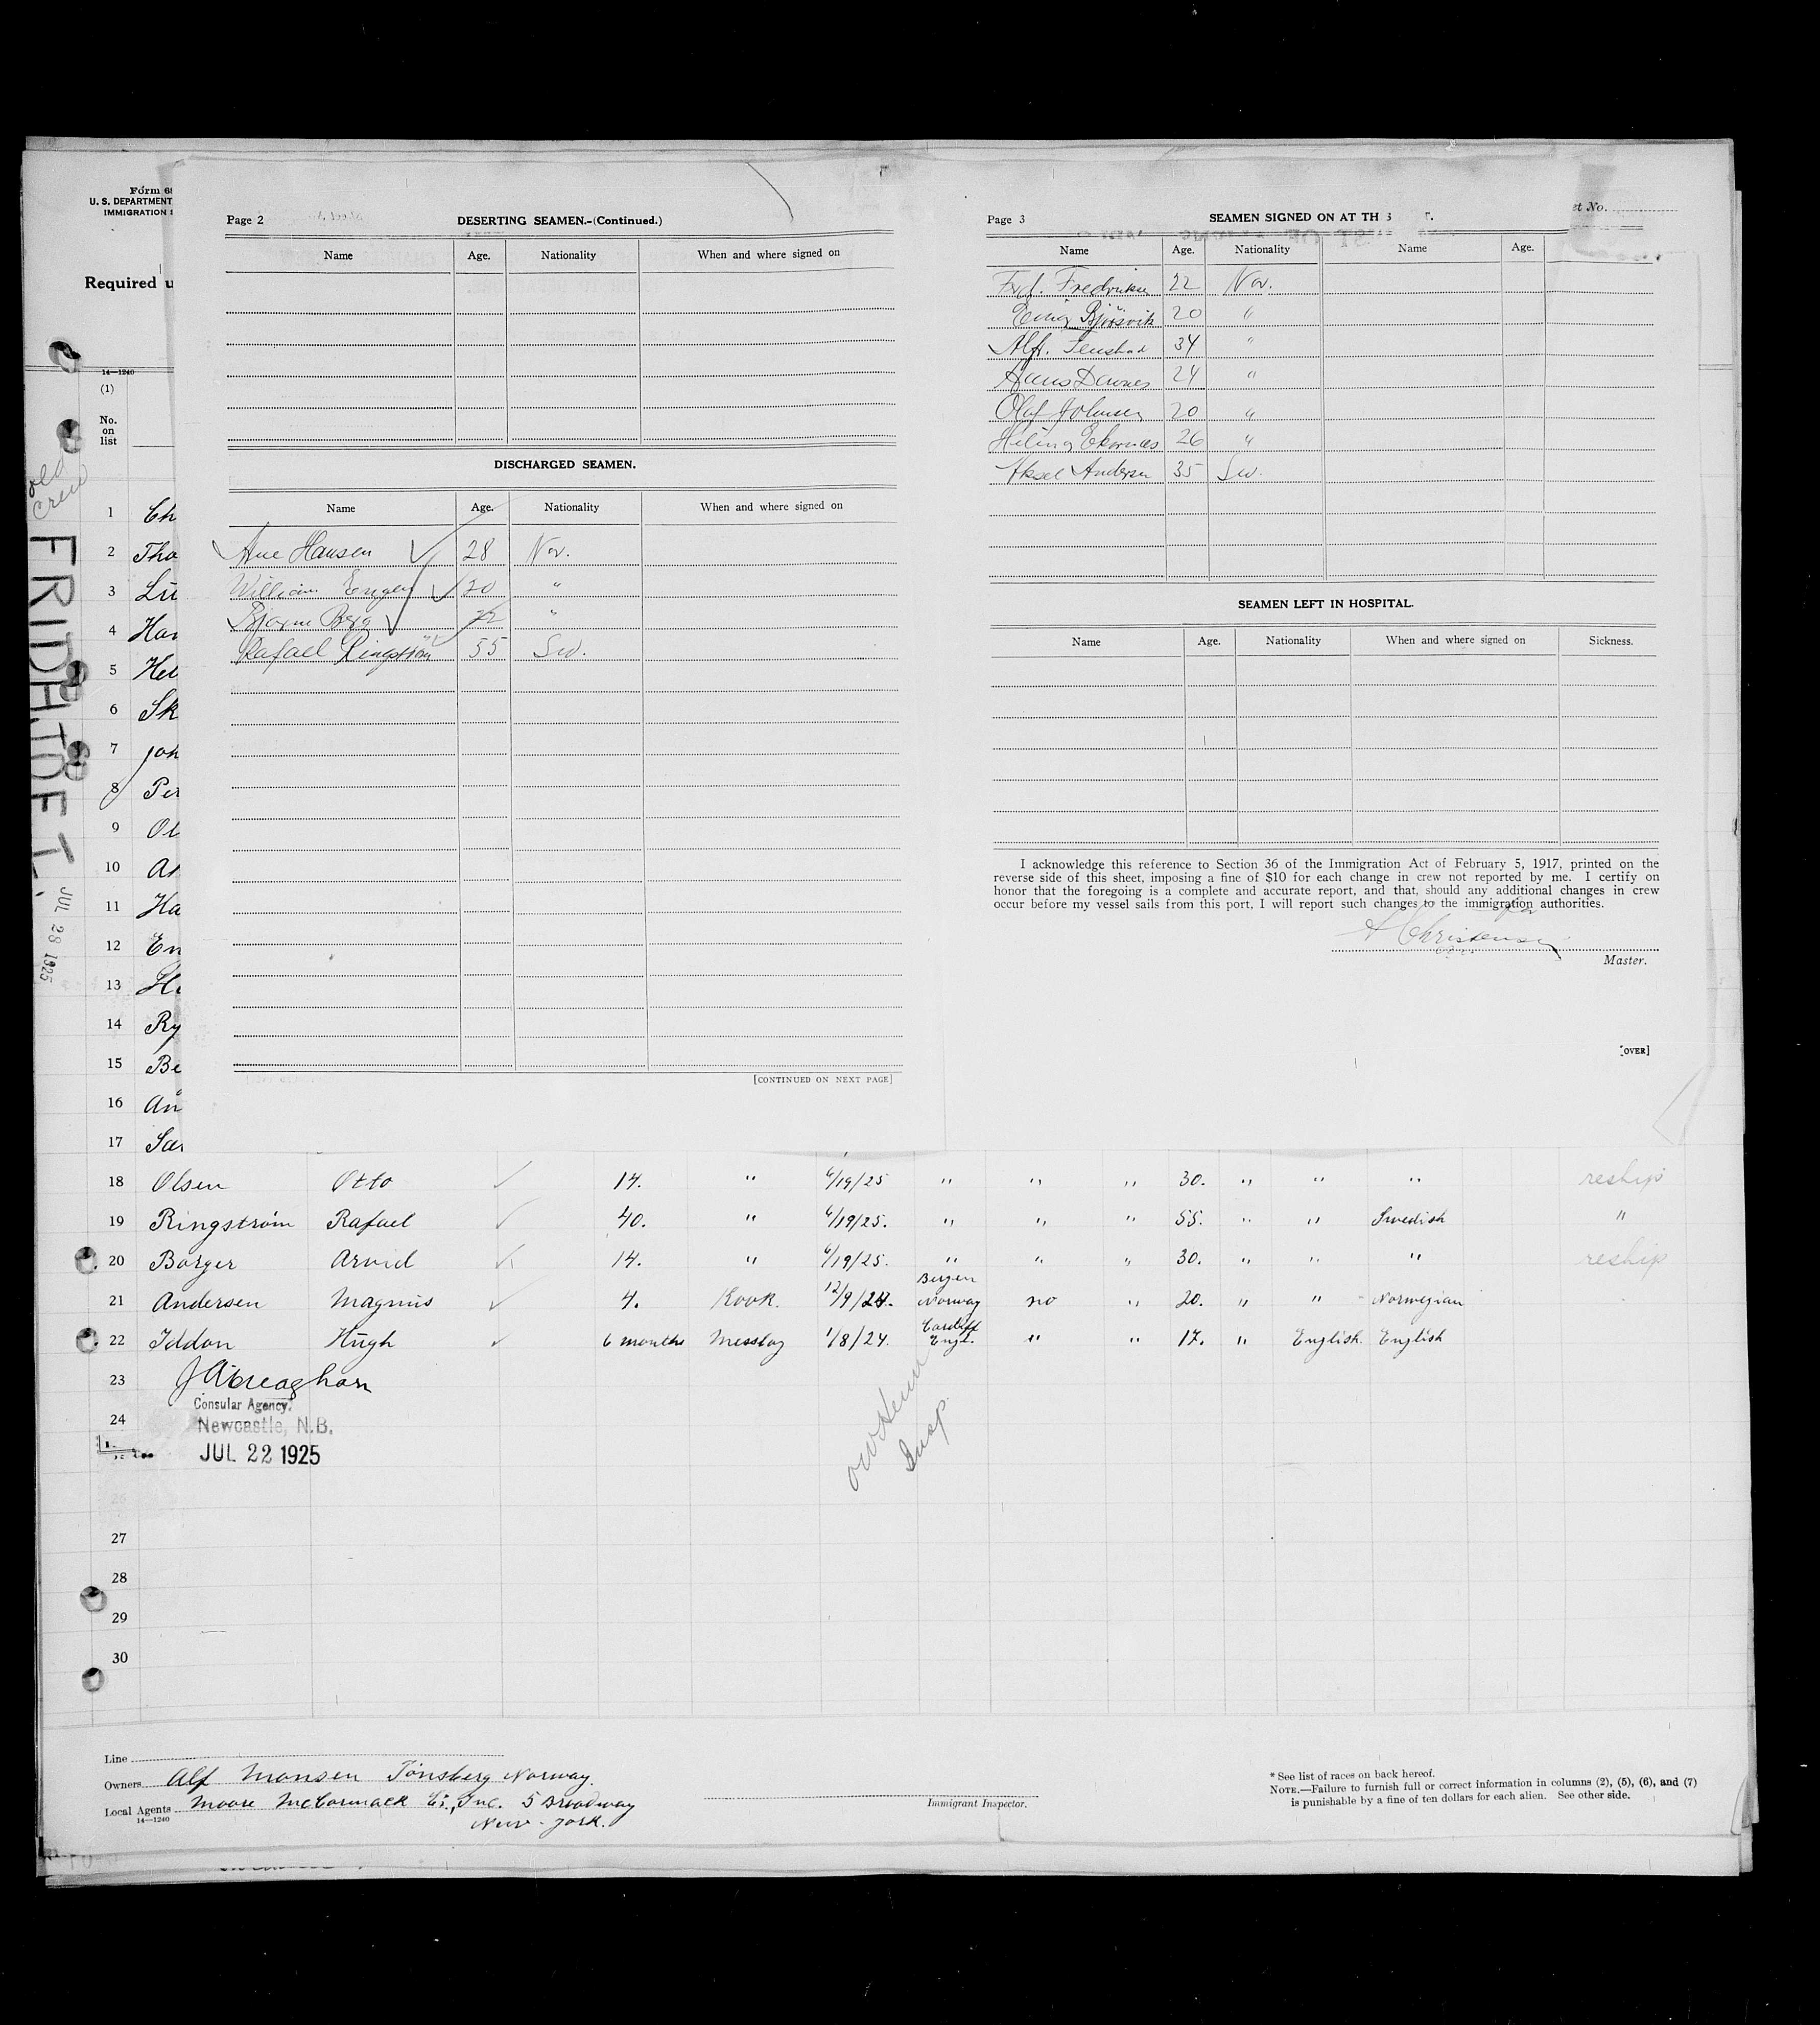 Form 68
U. S. DEPARTMENT
IMMIGRATION
Required u
14—1240
(1)
No.
on
list
old
crew
FRIDHTOF
JUL 28 1925
1 Ch
2 Tho
3 Lu
4 Han
5 Hel
6 Sk
7 Joh
8 Per
9 Ol
10 An
11 Ha
12 En
13 H
14 Ry
15 Be
16 An
17 Sa
Page 2
DESERTING SEAMEN.-(Continued.)
Name Age. Nationality When and where signed on
DISCHARGED SEAMEN.
Name Age. Nationality When and where signed on
Arne Hansen 28 Nor.
William Engen 20 "
Bjarne Berg 22 "
Rafael Ringström 55 Sw.
[CONTINUED ON NEXT PAGE]
Page 3
SEAMEN SIGNED ON AT TH S T.
et No.
Name Age. Nationality Name Age.
Fredriksen 22 Nor.
Einar Bjørsvik 20 "
Alfr. Tenstad 34 "
Hans 24 "
Olaf Johnsen 20 "
Ekornes 26 "
Aksel Andersen 35 Sw.
SEAMEN LEFT IN HOSPITAL.
Name Age. Nationality When and where signed on Sickness.
I acknowledge this reference to Section 36 of the Immigration Act of February 5, 1917, printed on the
reverse side of this sheet, imposing a fine of $10 for each change in crew not reported by me. I certify on
honor that the foregoing is a complete and accurate report, and that, should any additional changes in crew
occur before my vessel sails from this port, I will report such changes to the immigration authorities.
Christensen
Master.
[OVER]
18 Olsen Otto 14. " 6/19/25 " " " 30. " " " reship
19 Ringstrøm Rafael 40. " 6/19/25. " " " 55. " " Swedish "
20 Borger Arvid 14. " 6/19/25. " " " 30. " " " reship
21 Andersen Magnus 4. Kook. 12/9/24. Bergen Norway no " 20. " " Norwegian
22 Iddon Hugh 6 months Messboy 1/8/24. Cardiff Engl. " " 17. " English. English
23
Consular Agency.
24 Newcastle, N.B.
JUL 22 1925
Insp.
26
27
28
29
30
Line
Owners Alf Monsen Tönsberg Norway.
Local Agents Moore McCormack Co., Inc. 5 Broadway
14—1240
New-York.
Immigrant Inspector.
* See list of races on back hereof.
NOTE.—Failure to furnish full or correct information in columns (2), (5), (6), and (7)
is punishable by a fine of ten dollars for each alien. See other side.